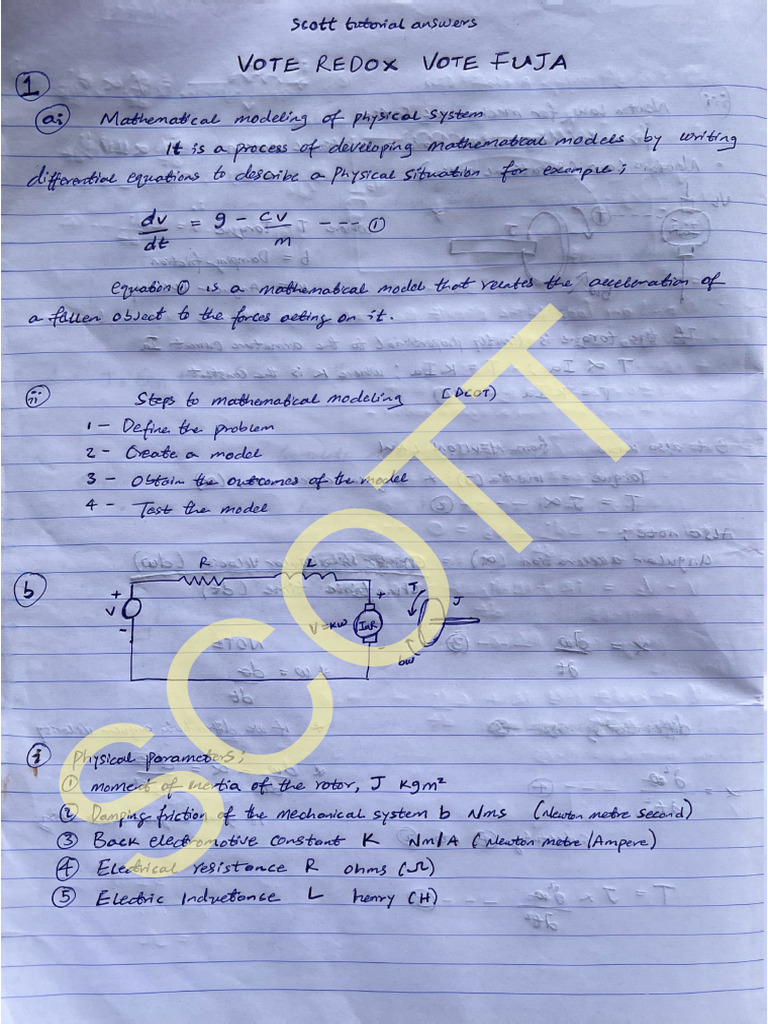 Scott tutorial answers
VOTE REDOX VOTE FUJA
1
ai Mathematical modeling of physical system
It is a process of developing mathematical models by writing
differential equations to describe a physical situation for example;
dv/dt = g - cv/m --- ①
equation ① is a mathematical model that relates the acceleration of
a fallen object to the forces acting on it.
ii Steps to mathematical modeling (DCOT)
1 - Define the problem
2 - Create a model
3 - Obtain the outcomes of the model
4 - Test the model
b
R L
+ + T J
V V = Kω
- - bω
i physical parameters;
① moment of inertia of the rotor, J kgm²
② Damping friction of the mechanical system b Nms (Newton metre second)
③ Back electromotive constant K Nm/A (Newton metre/Ampere)
④ Electrical resistance R ohms (Ω)
⑤ Electric Inductance L henry (H)
SCOTT